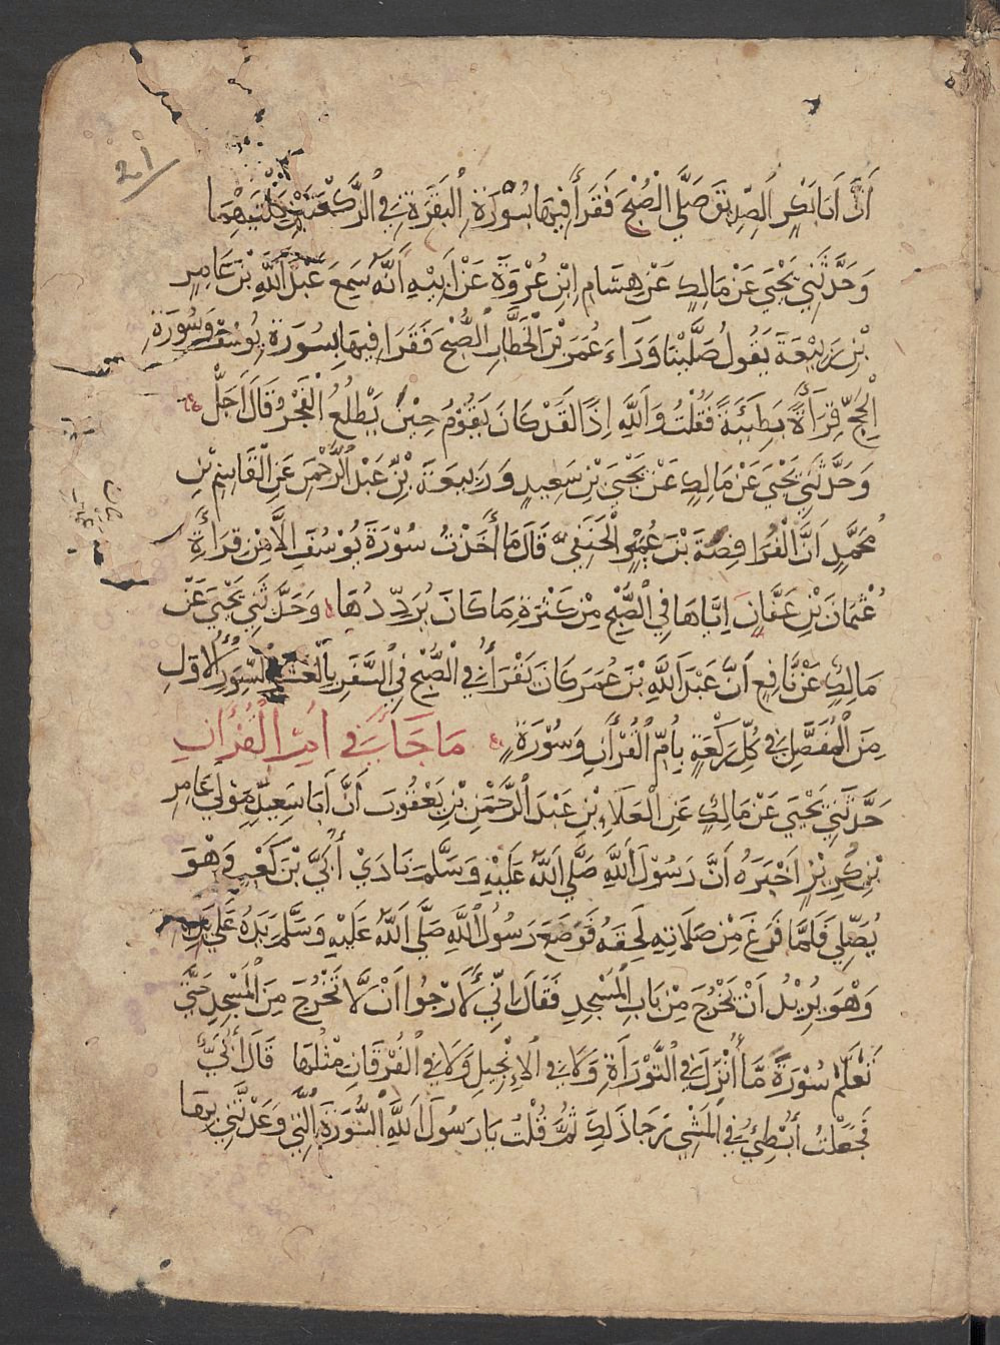 21
أَنَّ أَبَا بَكْرٍ الصِّدِيقَ صَلَّى الصُّبْحَ فَقَرَأَ فِيهَا بِسُوْرَةِ الْبَقَرَةِ فِي الرَّكْعَتَيْنِ كِلْتَيْهِمَا
وَحَدَّثَنِي يَحْيَي عَنْ مَالِكٍ عَنْ هِشَامِ ابْنِ عُرْوَةَ عَنْ اَبِيْهِ اَنَّهُ سَمِعَ عَبْدَ اللَّهِ بْنَ عَامِرِ
بْنِ رَبِيْعَةَ يَقُولُ صَلَّيْنَا وَرَاءَ عُمَرَ بْنَ الْخَطَّابِ الصُّبْحَ فَقَرَا فِيهَا بِسُورَةِ يُوْسُفَ وَسُورَةِ
الْحَجِّ قِرَاَةً بَطِيْئَةً فَقُلْتُ وَاللَّهِ اِذًا لَقَدْ كَانَ يَقُوْمُ حِيْنَ يَطْلُعُ الْفَجْرُ قَالَ اَجَلْ
وَحَدَّثَنِي يَحْيَي عَنْ مَالِكٍ عَنْ يَحْيَي بْنِ سَعِيدٍ وَرَبِيعَةَ بْنِ عَبْدِ الرَّحْمَنِ عَنِ الْقَاسِمِ بْنِ
مُحَمَّدٍ اَنَّ الْفُرَافِصَةَ بْنَ عُمَيْرٍ الْحَنَفِيَّ قَالَ مَا أَخَذْتُ سُوْرَةَ يُوْسُفَ اِلَّا مِنْ قِرَاَةِ
عُثْمَانَ بْنِ عَفَّانٍ اِيَّاهَا فِي الصُّبْحِ مِنْ كَثْرَةِ مَا كَانَ يُرَدِّدُهَا وَحَدَّثَنِي يَحْيَي عَنْ
مَالِكٍ عَنْ نَّافِعٍ اَنَّ عَبْدَ اللَّهِ بْنَ عُمَرَ كَانَ يَقْرَأُ فِي الصُّبْحِ فِي السَّفَرِ بِالْعَشْرِ السُّوَرِ الْاُوَلِ
مِنَ الْمُفَصَّلِ فِي كُلِّ رَكْعَةٍ بِأُمِّ الْقُرْأَنِ وَسُوْرَةٍ مَا جَاءَ فِي اُمِّ الْقُرْأَنِ
حَدَّثَنِي يَحْيَي عَنْ مَالِكٍ عَنِ الْعَلَاءِ بْنِ عَبْدِ الرَّحْمَنِ بْنِ يَعْقُوبَ اَنَّ اَبَا سَعِيدٍ مَوْلَي عَامِرِ
بْنِ كُرِيْزٍ اَخْبَرَهُ اَنَّ رَسُوْلَ اللَّهِ صَلَّي اللَّهُ عَلَيْهِ وَسَلَّمَ نَادَيْ أُبَيَّ بْنَ كَعْبٍ وَهْوَ
يُصَلِّي فَلَمَّا فَرَغَ مِنْ صَلَاتِهِ لَحِقَهُ فَوَضَعَ رَسُولُ اللَّهِ صَلَّي اللَّهُ عَلَيْهِ وَسَلَّمَ يَدَهُ عَلَي يَدِهِ
وَهْوَ يُرِيْدُ اَنْ يَخْرُجَ مِنْ بَابِ الْمَسْجِدِ فَقَالَ اِنِّي لَاَرْجُوا اَنْ لَّا تَخْرُجَ مِنَ الْمَسْجِدِ حَتَّي
تَعْلَمَ سُوْرَةً مَّا أُنْزِلَ فِي التَّوْرَاةِ وَلَا فِي الْاِنْجِيلِ وَلَا فِي الْفُرْقَانِ مِثْلُهَا قَالَ أُبَيٌّ
فَجَعَلْتُ أُبْطِئُ فِي الْمَشْيِ رَجَا ذَلِكَ ثُمَّ قُلْتُ يَا رَسُوْلَ اللَّهِ السُّوْرَةَ الَّتِي وَعَدْتَّنِي بِهَا